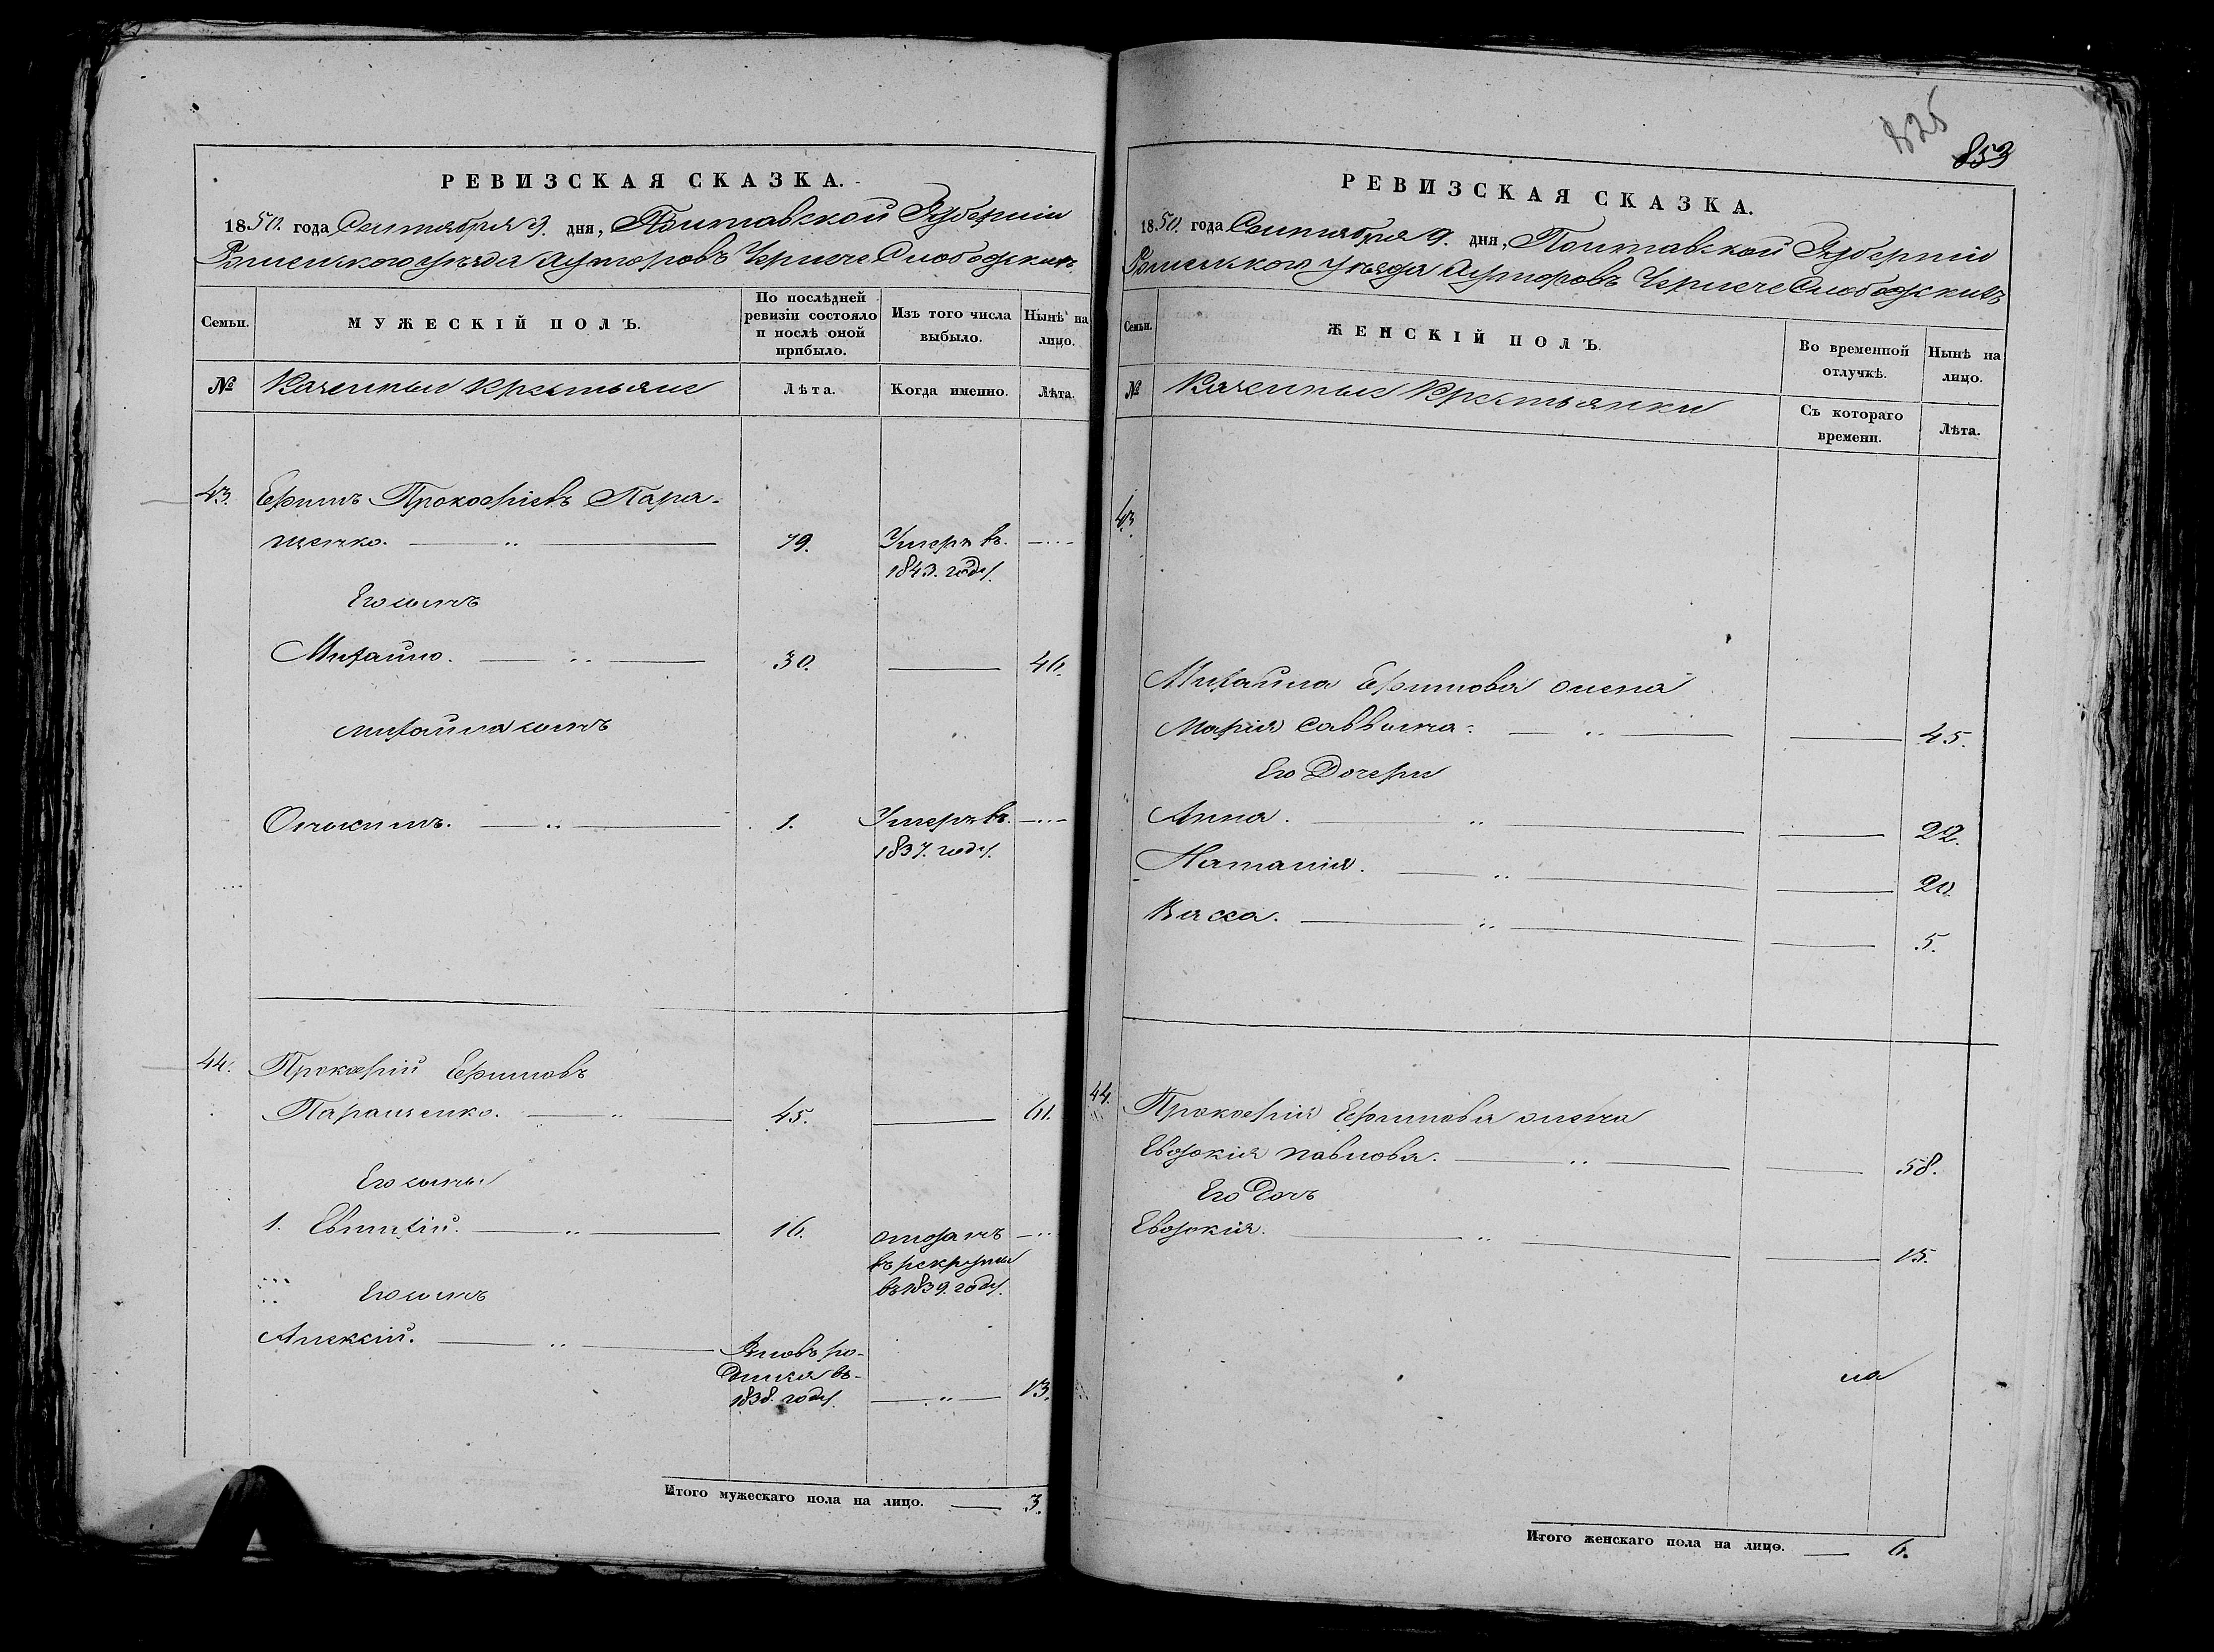 РЕВИЗСКАЯ СКАЗКА.
1850. года Сентября 9. дня, Полтавской Губерніи
Роменского уезда хуторовъ Черече Слободскихъ
Семьи.
МУЖЕСКІЙ ПОЛЪ.
По послѣдней ревизіи состояло и послѣ оной прибыло.
Изъ того числа выбыло.
Нынѣ на лицо.
№
Казенные Крестьяне
Лѣта.
Когда именно.
Лѣта.
43. Ефимъ Прокофіевъ Пара-
щенко. 79. Умеръ въ.
1843. году.
Его сынъ
Михайло. 30. 46.
михайла сынъ
1. Умеръ въ.
1837. году.
44. Прокофій Ефимовъ
Паращенко. 45. 61.
Его сыны
1. Евтихій. 16. отданъ
въ рекруты
въ 1839. году.
Его сынъ
Алексій. Вновь ро-
дился въ
1838. году. 13.
Итого мужескаго пола на лицо. 3.
825
853
РЕВИЗСКАЯ СКАЗКА.
1850. года Сентября 9. дня, Полтавской Губерніи
Роменского уезда хуторовъ Черече Слободскихъ
Семьи.
ЖЕНСКІЙ ПОЛЪ.
Во временной отлучкѣ.
Нынѣ на лицо.
№
Казенные Крестьянки
Съ котораго времени.
Лѣта.
43
Михайла Ефимова жена
Марія Саввина. 45.
Его Дочери
Анна. 22.
Наталія. 20.
Васса. 5.
44. Прокофія Ефимова жена
Евдокія Павлова. 58.
Его Дочь
Евдокія. 15.
Итого женскаго пола на лицо. 6.